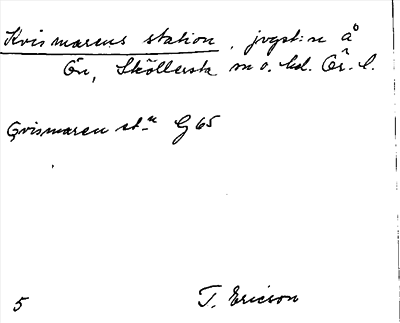 Kvismarens station, jvgst:n å
Ön, Sköllersta sn o. hd. Ör. l.
Qvismaren st.n G 65
5 T. Ericson